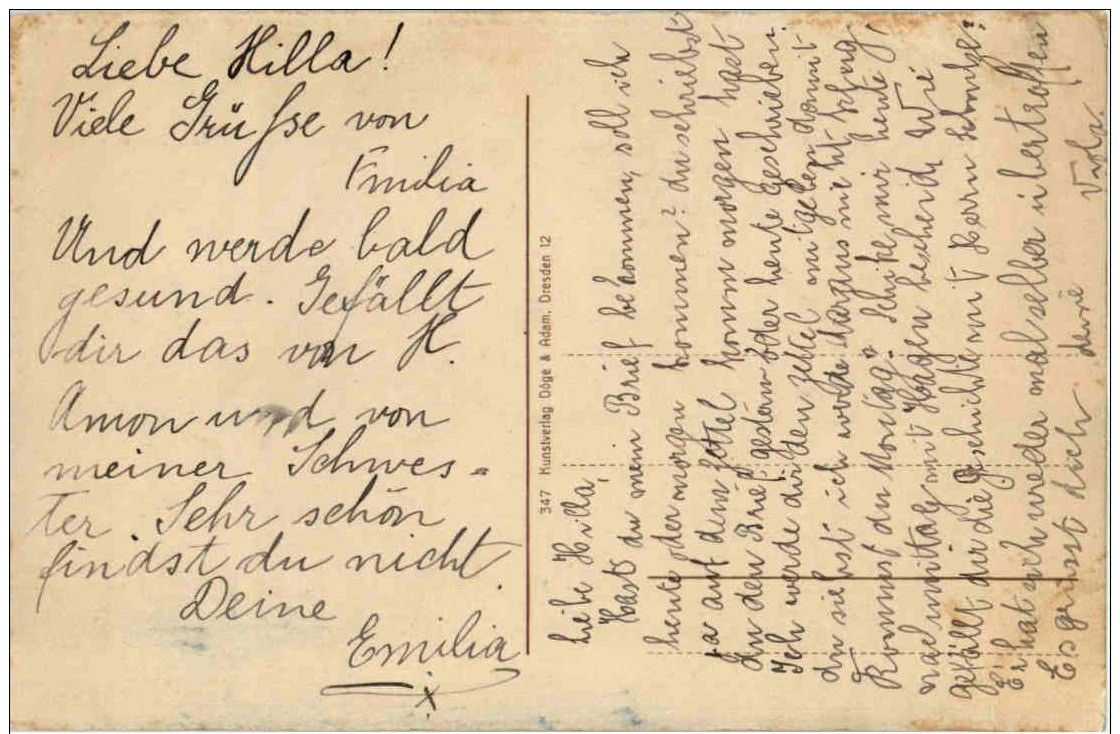 Liebe Hilla!
Viele Grüsse von
Emilia
Und werde bald
gesund. Gefällt
dir das von H.
Amon und von
meiner Schwes=
ter. Sehr schön
findst du nicht.
Deine
Emilia
x
347 Kunstverlag Döge & Adam, Dresden 12
Liebe Hilla,
Hast du mein Brief bekommen, soll ich
heute oder morgen kommen? du schriebst
ja auf dem zettel komm morgen hast
du den Brief gestern oder heute geschrieben.
Ich werde dir den zettel mitgeben damit
du siehst ich werde daraus nicht
Kommst du Montag. Schike mir heute
nachmitag mit bescheid. Wie
gefällt dir die Geschichte mit Herrn
Er hat sich wieder mal selber übertroffen
Es grüsst dich deine